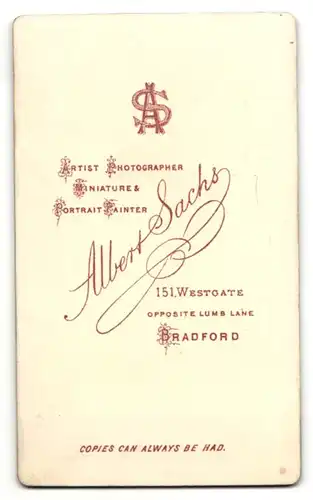 AS
ARTIST PHOTOGRAPHER
MINIATURE &
PORTRAIT PAINTER
Albert Sachs
151, WESTGATE
OPPOSITE LUMB LANE
BRADFORD
COPIES CAN ALWAYS BE HAD.